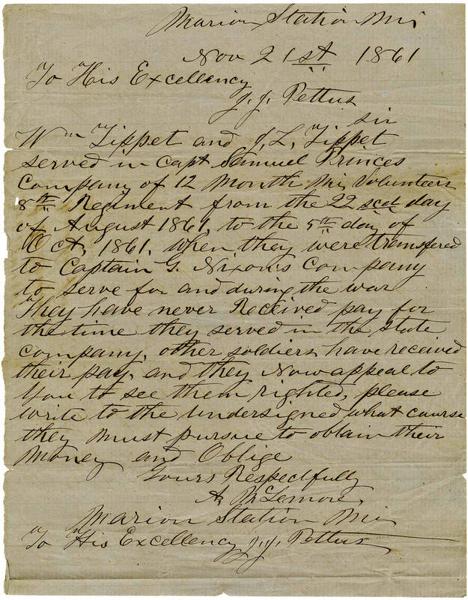 Marion Station Mi
Nov 21st 1861
To His Excellency
J. J. Pettus
Sir
Wm Tippet and J. L. Tippet
served in Capt Samuel Princes
Company of 12 Month Mi, Volunteers
8th Regiment from the 22 scd day
of August 1861, to the 5th day of
Oct, 1861, when they were transfered
to Captain G. Nixon's Company
to serve for and during the war
They have never Received pay for
the time they served in the State
Company, other soldiers have received
their pay, and they Now appeal to
You to see them righted, please
write to the undersigned what course
they must pursue to obtain their
Money and Oblige
Yours Respectfully
A, McLemore
Marion Station Mi
To His Excellency J. J. Pettus